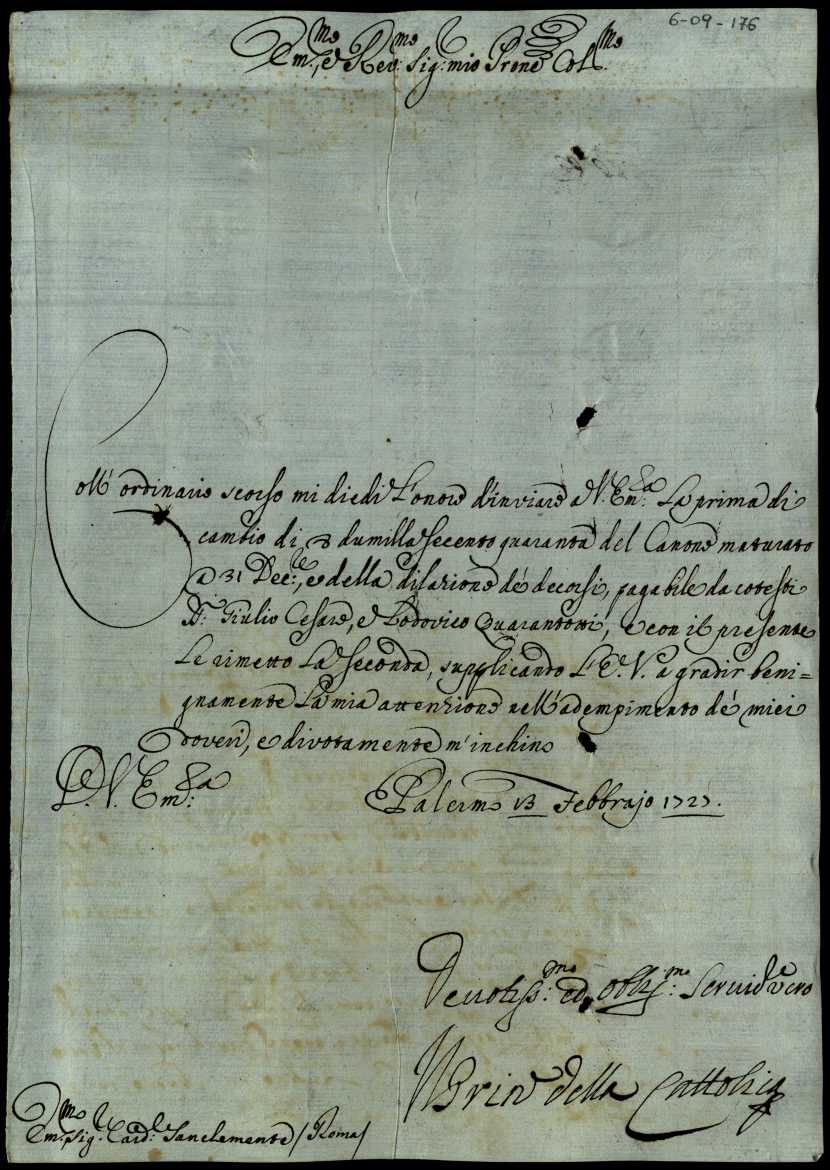 6-09-176
Em.mo, e Rev.mo Sig: mio Prone Coll.mo
Coll'ordinario scorso mi diedi l'onore d'inviare a V. Em.za La prima di
cambio di ∇ dumilla secento quaranta del Canone maturato
a 31 Dec.le, e della dilazione de' decorsi, pagabile da cotesti
Giulio Cesare, e Lodovico Quarantotti, e con il presente
Le rimetto La Seconda, supplicando L'E. V. a gradir beni=
gnamente La mia attenzione nell'adempimento de' miei
doveri, e divotamente m'inchino
D. V. Em.za
Palermo 13 Febbrajo 1727.
Devotiss.mo ed obblig.mo Servid.e vero
Il Prin della Cattolica
Em.mo Sig.r Card.le Sanclemente / Roma /